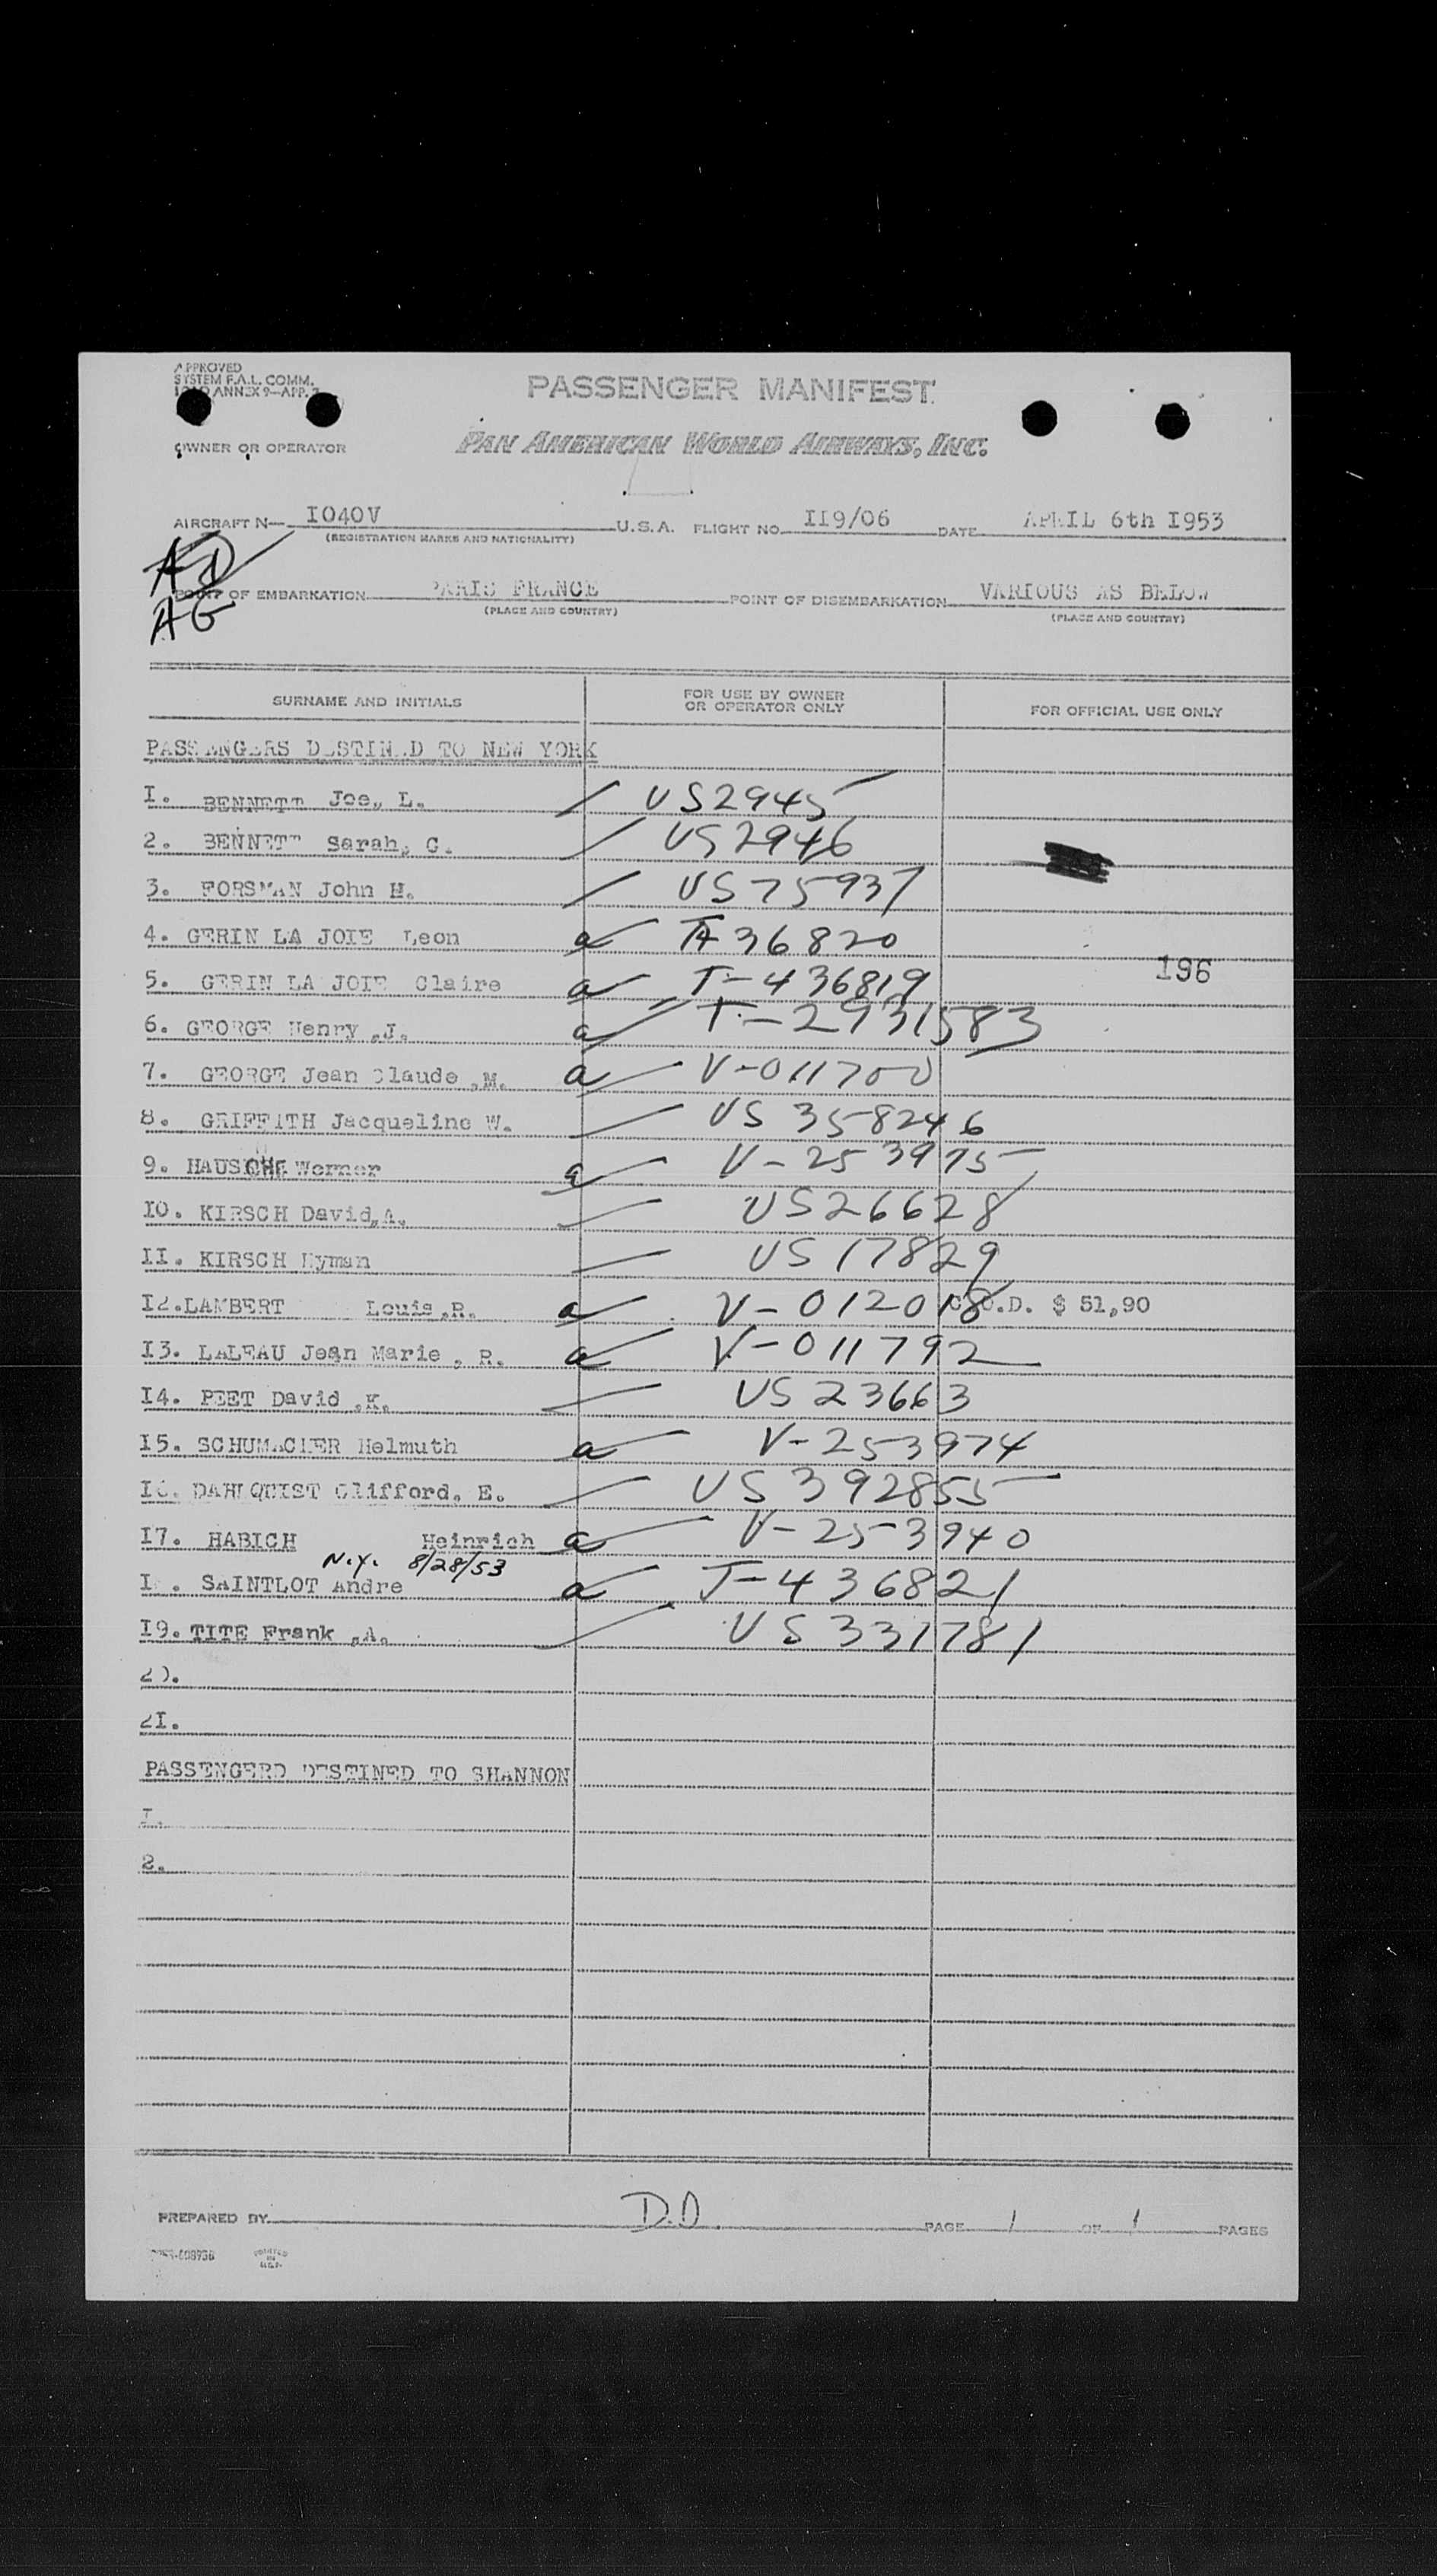 APPROVED
SYSTEM F.A.L. COMM.
ANNEX 9-APP.
PASSENGER MANIFEST
OWNER OR OPERATOR
PAN AMERICAN WORLD AIRWAYS, INC.
AIRCRAFT N- I040V U.S.A. FLIGHT NO. II9/06 DATE APRIL 6th I953
(REGISTRATION MARKS AND NATIONALITY)
AD
POINT OF EMBARKATION PARIS FRANCE POINT OF DISEMBARKATION VARIOUS AS BELOW
(PLACE AND COUNTRY) (PLACE AND COUNTRY)
AG
SURNAME AND INITIALS FOR USE BY OWNER OR OPERATOR ONLY FOR OFFICIAL USE ONLY
PASSENGERS DESTINED TO NEW YORK
I. BENNETT Joe, L. US2945
2. BENNETT Sarah, G. US2946
3. FORSMAN John H. US 75937
4. GERIN LA JOIE Leon a 36820
5. GERIN LA JOIE Claire a T-436819
196
6. GEORGE Henry ,J. a T-2931583
7. GEORGE Jean Claude ,M. a V-011700
8. GRIFFITH Jacqueline W. US 358246
9. Werner a V-253975
IO. KIRSCH David,A. US26628
II. KIRSCH Hyman US 17829
I2.LAMBERT Louis,R. a V-012018 C.O.D. $ 51,90
I3. LALEAU Jean Marie , R. a V-011792
I4. PEET David ,K. US 23663
I5. SCHUMACHER Helmuth a V-253974
I6. DAHLQUIST Clifford, E. US 392855
I7. HABICH Heinrich a V-253940
N.Y. 8/28/53
I8. SAINTLOT Andre a T-436821
I9. TITE Frank ,A. US 331781
20.
2I.
PASSENGERD DESTINED TO SHANNON
I.
2.
PREPARED BY D.O. PAGE 1 OF 1 PAGES
PRINTED
IN
U.S.A.